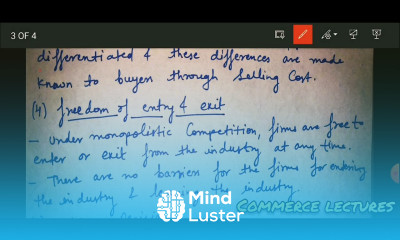 3 OF 4
differentiated & these differences are made
known to buyers through Selling Cost.
(4) freedom of entry & exit
- Under monopolistic Competition, firms are free to
enter or exit from the industry at any time.
- There are no barriers for the firms for entering
the industry & the industry.
Mind
Luster
COMMERCE LECTURES